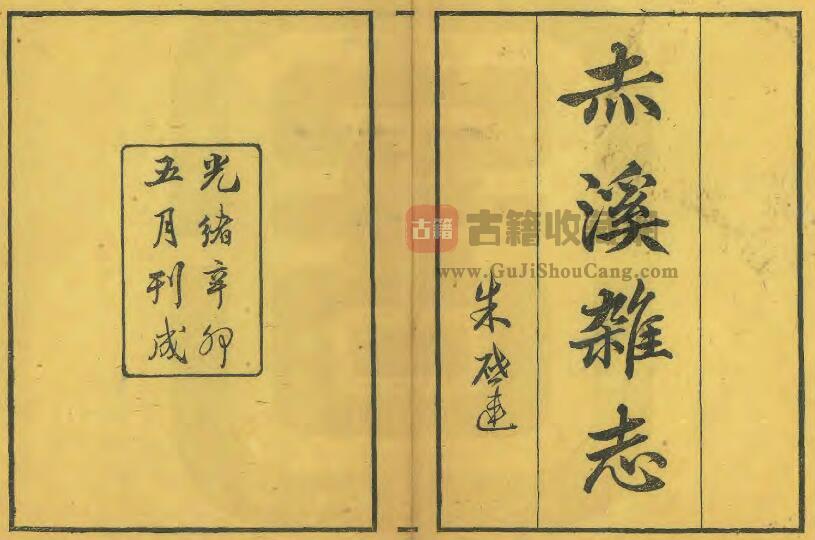 赤溪雜志
朱啟連
光緒辛卯
五月刊成
古籍
古籍收
www.GuJiShouCang.com